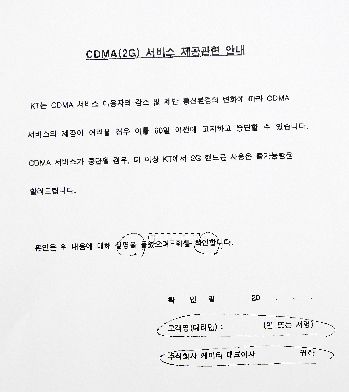 CDMA(2G) 서비스 제공관련 안내
KT는 CDMA 서비스 이용자의 감소 및 제반 통신환경의 변화에 따라 CDMA
서비스의 제공이 어려울 경우 이를 60일 이전에 고지하고 중단할 수 있습니다.
CDMA 서비스가 중단될 경우, 더 이상 KT에서 2G 핸드폰 사용은 불가능함을
알려드립니다.
본인은 위 내용에 대해 설명을 들었으며 이를 확인합니다.
확 인 일 20 . . .
고객명(대리인) : (인 또는 서명)
주식회사 케이티 대표이사 귀하